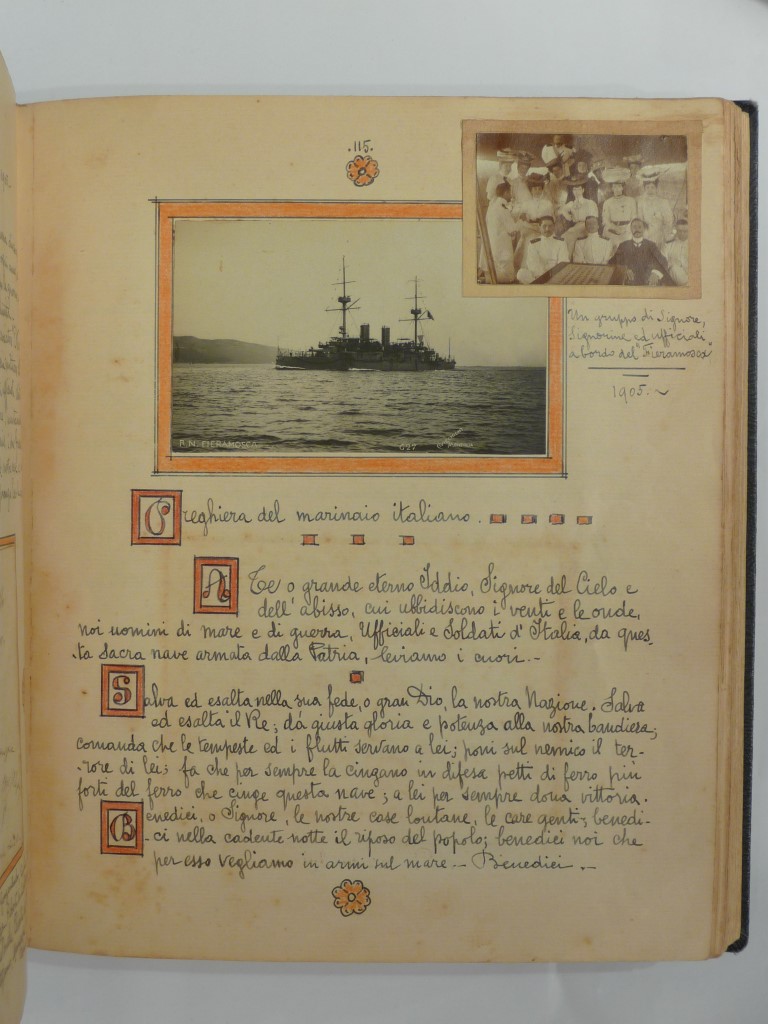 .115.
R.N. FIERAMOSCA
627
Un gruppo di Signore,
Signorine ed ufficiali
a bordo del "Fieramosca"
1905.~
Preghiera del marinaio italiano.
A Te o grande eterno Iddio, Signore del Cielo e
dell'abisso, cui ubbidiscono i venti e le onde,
noi uomini di mare e di guerra, Ufficiali e Soldati d'Italia, da ques-
-ta sacra nave armata dalla Patria, leviamo i cuori.-
Salva ed esalta nella sua fede, o gran Dio, la nostra Nazione. Salva
ad esalta il Re; dà giusta gloria e potenza alla nostra bandiera;
comanda che le tempeste ed i flutti servano a lei; poni sul nemico il ter-
-rore di lei; fa che per sempre la cingano in difesa petti di ferro più
forti del ferro che cinge questa nave; a lei per sempre dona vittoria.
Benedici, o Signore, le nostre case lontane, le care genti; benedi-
-ci nella cadente notte il riposo del popolo; benedici noi che
per esso vegliamo in armi sul mare.- Benedici.-